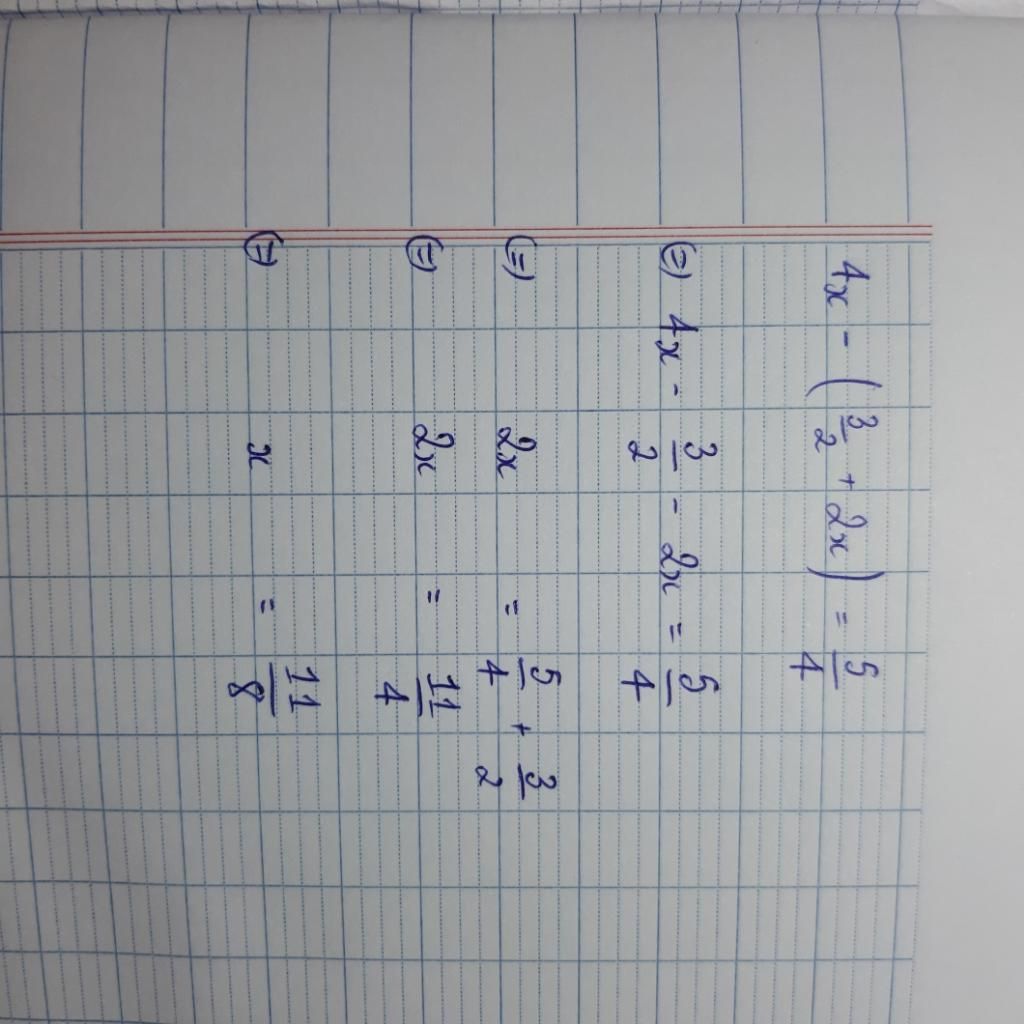 4x - (3/2 + 2x) = 5/4
(=) 4x - 3/2 - 2x = 5/4
(=) 2x = 5/4 + 3/2
(=) 2x = 11/4
(=) x = 11/8